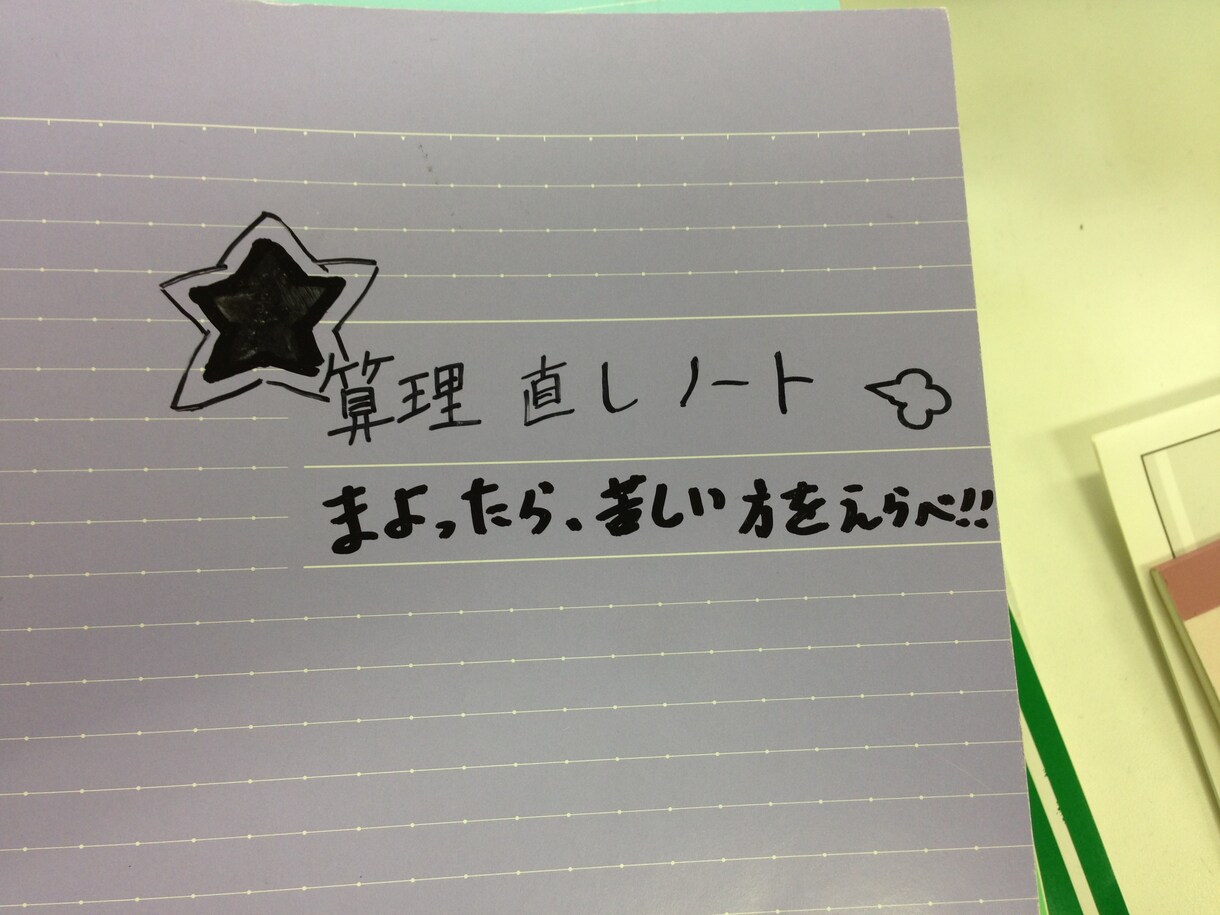 算理 直しノート
まよったら、苦しい方をえらべ!!